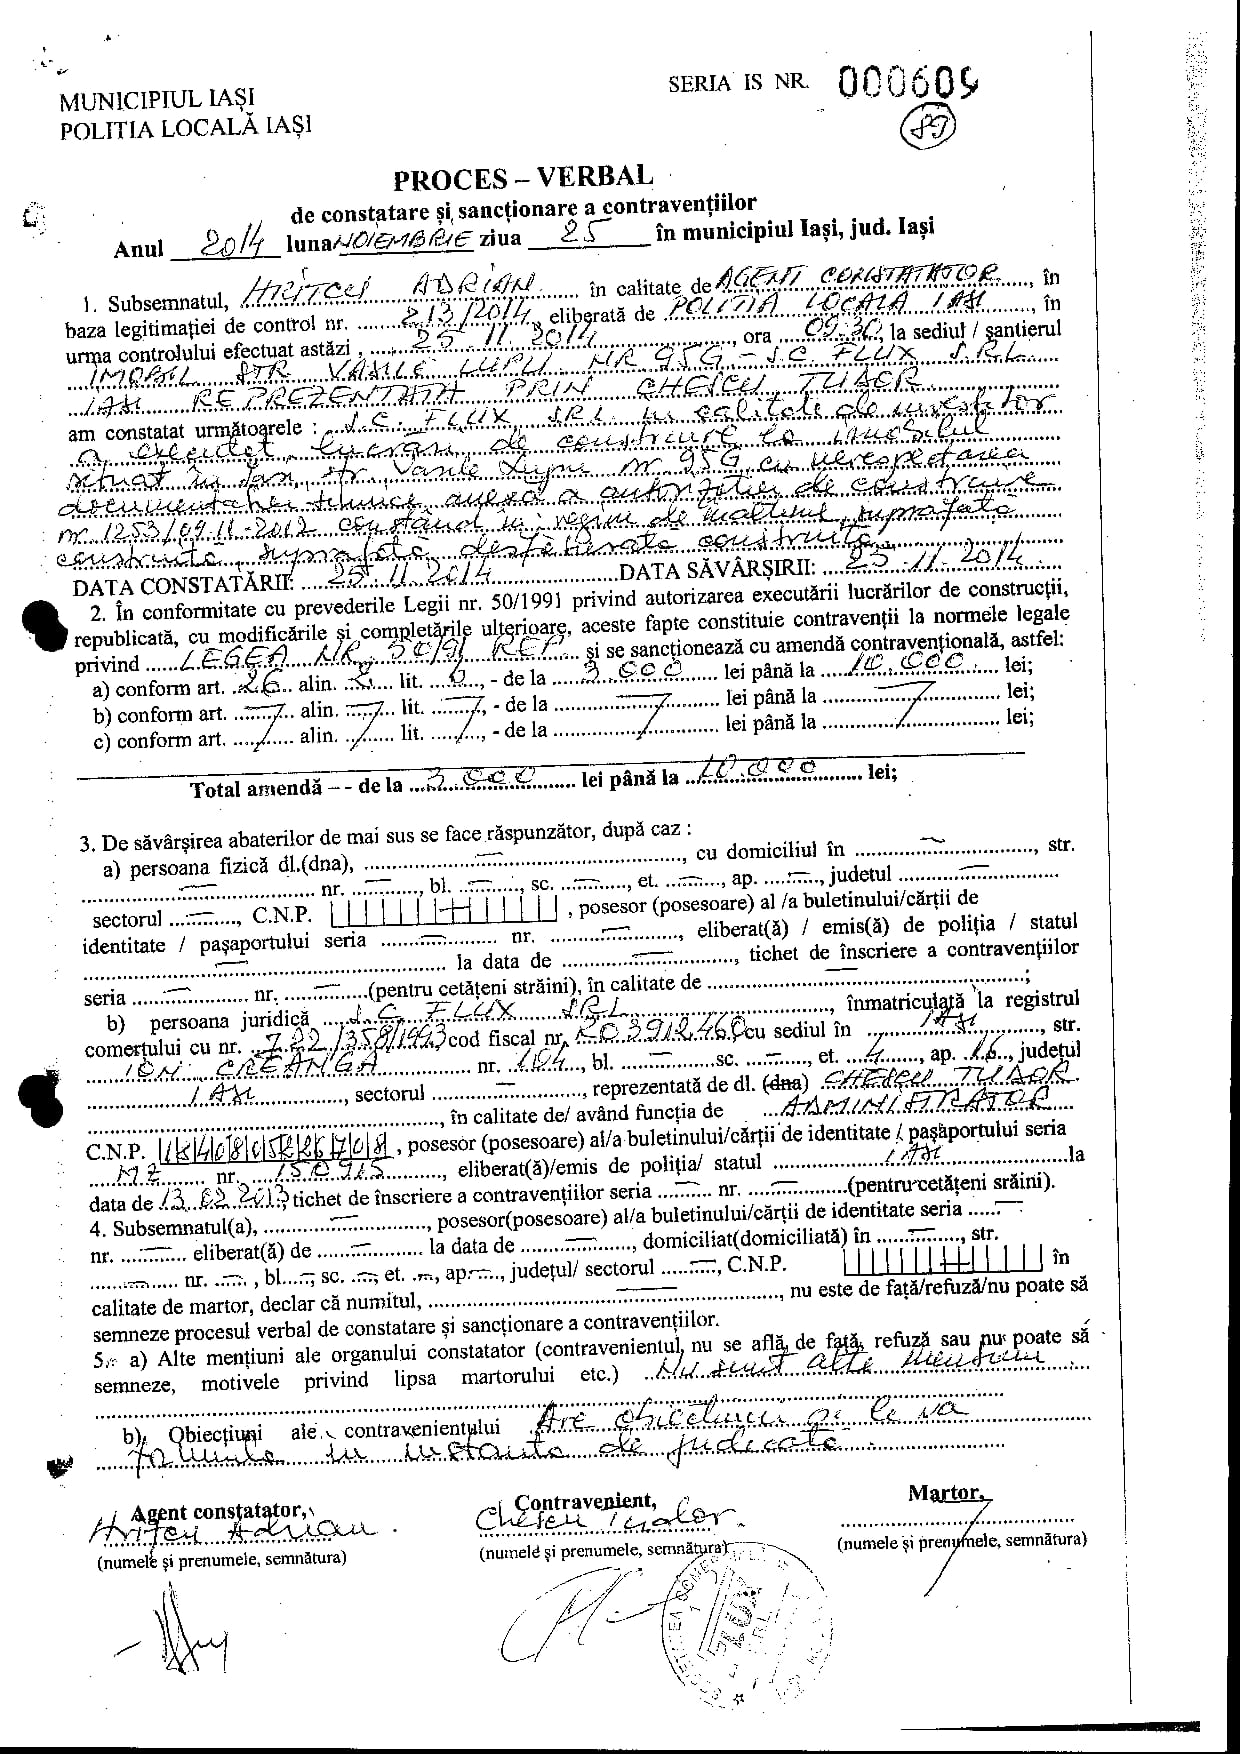 MUNICIPIUL IAȘI
POLITIA LOCALĂ IAȘI
SERIA IS NR. 000609
89
PROCES – VERBAL
de constatare și sancționare a contravențiilor
Anul 2014 luna NOIEMBRIE ziua 25 în municipiul Iași, jud. Iași
1. Subsemnatul, HRIȚCU ADRIAN în calitate de AGENT CONSTATATOR, în
baza legitimației de control nr. 213/2014 eliberată de POLITIA LOCALA IASI, în
urma controlului efectuat astăzi, 25.11.2014, ora 09:30, la sediul / șantierul
IMOBIL STR VASILE LUPU NR 95G – S.C. FLUX S.R.L.
IASI REPREZENTATA PRIN CHEȘCU TUDOR
am constatat următoarele : S.C. FLUX SRL in calitate de investitor
a executat lucrari de construire la imobilul
situat în Iasi, str. Vasile Lupu nr 95G, cu nerespectarea
documentatiei tehnice anexă a autorizatiei de construire
nr. 1253/09.11.2012 constând în: regim de inaltime, suprafata
construita, suprafată desfăsurata construita
DATA CONSTATĂRII: 25.11.2014 DATA SĂVÂRȘIRII: 25.11.2014
2. În conformitate cu prevederile Legii nr. 50/1991 privind autorizarea executării lucrărilor de construcții,
republicată, cu modificările și completările ulterioare, aceste fapte constituie contravenții la normele legale
privind LEGEA NR. 50/91 REP. și se sancționează cu amendă contravențională, astfel:
a) conform art. 26 alin. 2 lit. b, - de la 3.000 lei până la 10.000 lei;
b) conform art. – alin. – lit. –, - de la – lei până la – lei;
c) conform art. / alin. / lit. /, - de la / lei până la / lei;
Total amendă – - de la 3.000 lei până la 10.000 lei;
3. De săvârșirea abaterilor de mai sus se face răspunzător, după caz :
a) persoana fizică dl.(dna), – , cu domiciliul în – , str.
– nr. –, bl. –, sc. –, et. –, ap. –, județul –
sectorul –, C.N.P. , posesor (posesoare) al /a buletinului/cărții de
identitate / pașaportului seria – nr. –, eliberat(ă) / emis(ă) de poliția / statul
– la data de –, tichet de înscriere a contravențiilor
seria – nr. – (pentru cetățeni străini), în calitate de – ;
b) persoana juridică S.C. FLUX SRL, înmatriculată la registrul
comerțului cu nr. J22/358/1993 cod fiscal nr. RO3912460 cu sediul în IASI, str.
ION CREANGA nr. 104, bl. – sc. –, et. 4, ap. 16, județul
IASI, sectorul –, reprezentată de dl. (dna) CHEȘCU TUDOR
, în calitate de/ având funcția de ADMINISTRATOR
C.N.P. , posesor (posesoare) al/a buletinului/cărții de identitate / pașaportului seria
MZ nr. 150915, eliberat(ă)/emis de poliția/ statul IASI la
data de 13.02.2013 tichet de înscriere a contravențiilor seria – nr. – (pentru cetățeni srăini).
4. Subsemnatul(a), –, posesor(posesoare) al/a buletinului/cărții de identitate seria –
nr. – eliberat(ă) de – la data de –, domiciliat(domiciliată) în –, str.
– nr. –, bl. –, sc. –, et. –, ap. –, județul/ sectorul –, C.N.P. în
calitate de martor, declar că numitul, –, nu este de față/refuză/nu poate să
semneze procesul verbal de constatare și sancționare a contravențiilor.
5. a) Alte mențiuni ale organului constatator (contravenientul nu se află de față, refuză sau nu poate să
semneze, motivele privind lipsa martorului etc.) Nu sunt alte mentiuni
b) Obiecțiuni ale contravenientului Are obiectiuni pe le va
formula in instanta de judecata
Agent constatator,
Hrițcu Adrian
(numele și prenumele, semnătura)
Contravenient,
Cheșcu Tudor
(numele și prenumele, semnătura)
Martor,
(numele și prenumele, semnătura)
FLUX